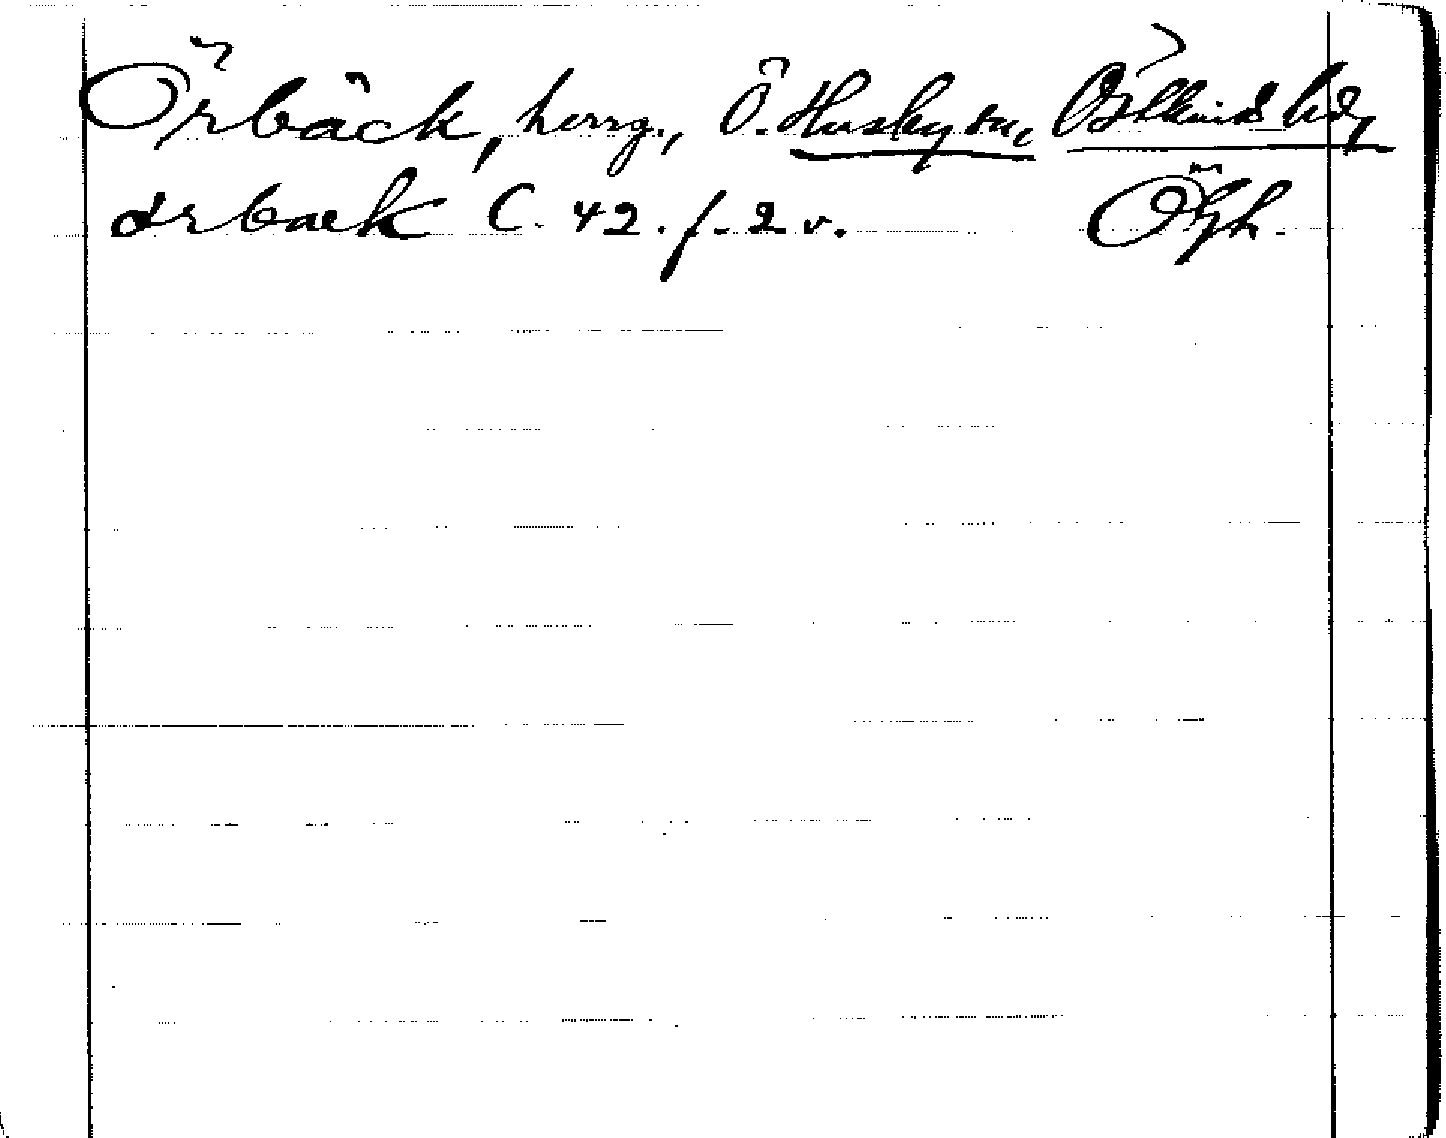 Örbäck, herrg., Ö. Husby sn, Östkinds hd,
ørbaek C. 42. f. 2 v. Ögtl.